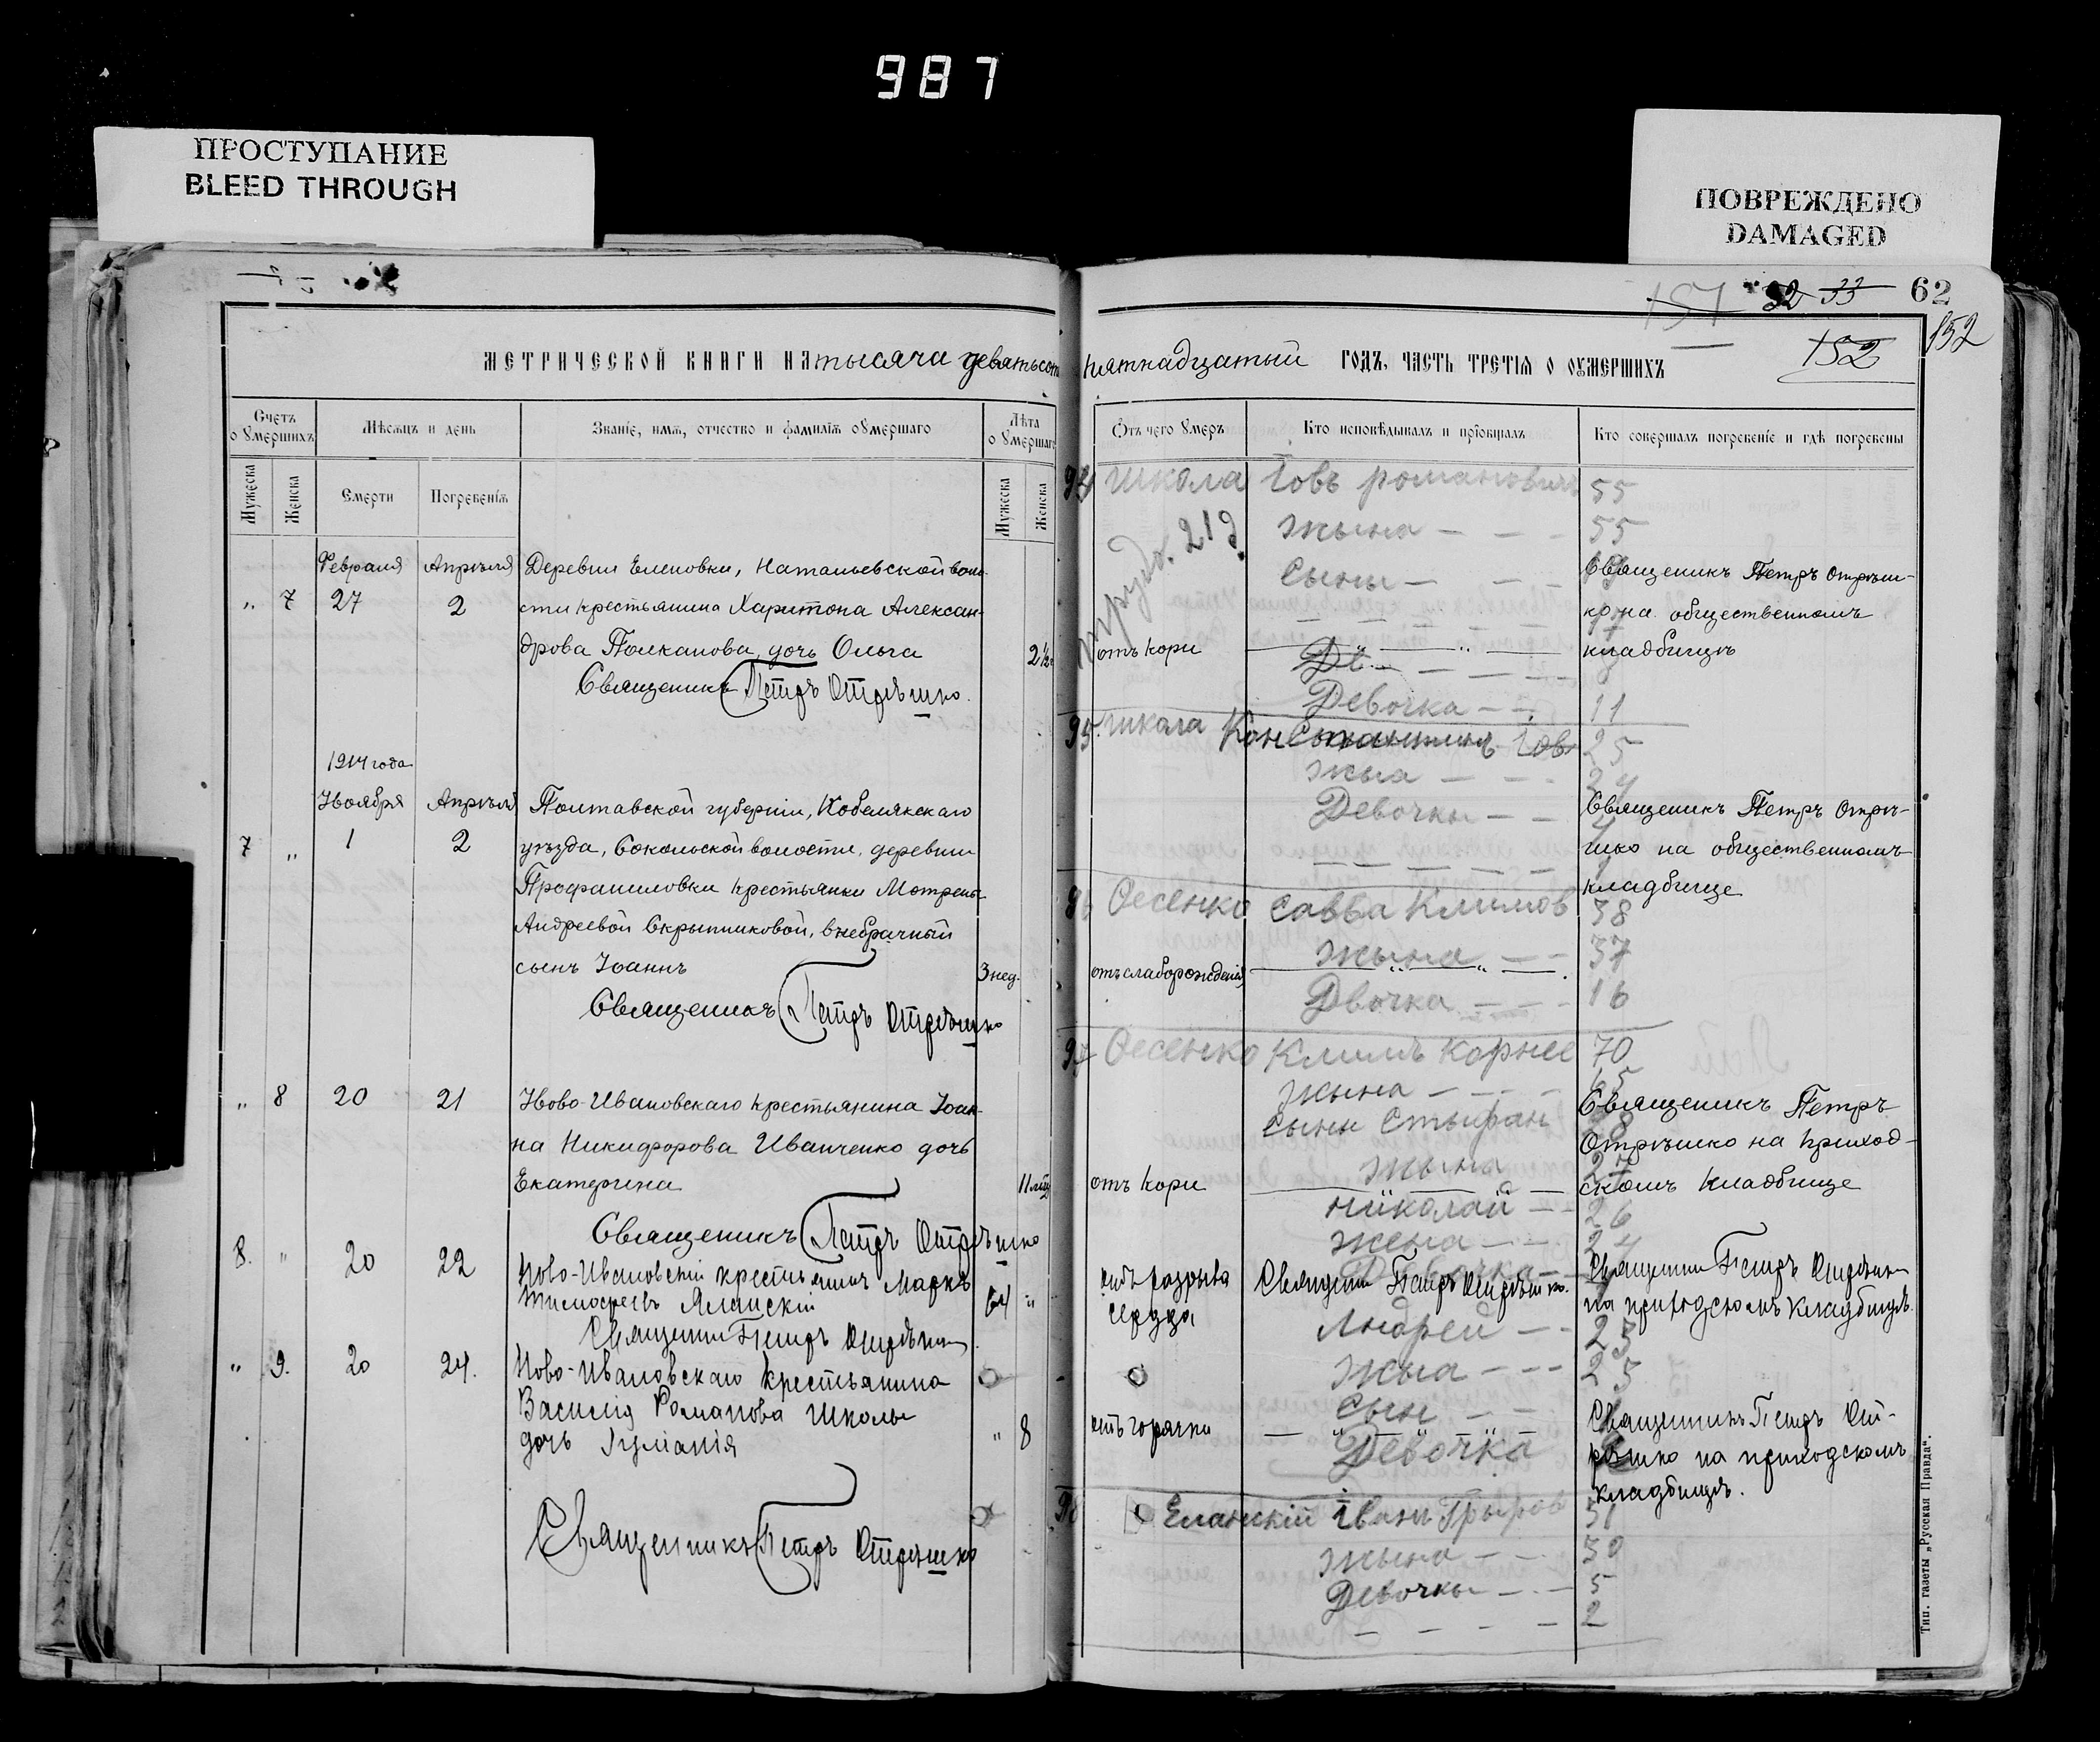 987
ПРОСТУПАНИЕ
BLEED THROUGH
ПОВРЕЖДЕНО
DAMAGED
151 32 33 62
152
152
МЕТРИЧЕСКОЙ КНИГИ НА тысяча девятьсот пятнадцатый ГОДЪ, ЧАСТЬ ТРЕТІЯ О ОУМЕРШИХЪ
Счетъ оумершихъ
Мѣсяцъ и день
Званіе, имя, отчество и фамилія оумершаго
Лѣта оумершаго
Отъ чего оумеръ
Кто исповѣдывалъ и пріобщалъ
Кто совершалъ погребеніе и гдѣ погребены
Мужеска
Женска
Смерти
Погребенія
Мужеска
Женска
Февраля Апрѣля Деревни Еленовки, Натальевской воло-
" 7 27 2 сти крестьянина Харитона Алексан-
дрова Полканова, дочь Ольга 2½
Священикъ Петръ Отрѣшко.
отъ кори
Священикъ Петръ Отрѣш-
ко на общественномъ
кладбищѣ
1914 года
Ноября Апрѣля Полтавской губерніи, Кобелякскаго
7 " 1 2 уѣзда, Сокольской волости, деревни
крестьянки Мотрены
Андреевой Скрыпниковой, внебрачный
сынъ Іоаннъ 3 нед.
Священикъ Петръ Отрѣшко
отъ слаборожденія
Священикъ Петръ Отрѣ-
шко на общественномъ
кладбище
" 8 20 21 Ново-Ивановскаго крестьянина Іоан-
на Никифорова Иванченко дочь
Екатерина 11 мѣц
Священикъ Петръ Отрѣшко
отъ кори
Священикъ Петръ
Отрѣшко на приход-
скомъ кладбище
8. " 20 22 Ново-Ивановскій крестьянинъ Маркъ
Тимофеевъ Яланскій 64 "
Священникъ Петръ Отрѣшко
отъ разрыва
сердца
Священникъ Петръ Отрѣшко.
Священникъ Петръ Отрѣшко
на приходскомъ кладбищѣ.
" 9. 20 24. Ново-Ивановскаго крестьянина
Василія Романова Школы
дочь Іуліанія " 8
Священникъ Петръ Отрѣшко
отъ горячки
Священникъ Петръ От-
рѣшко на приходскомъ
кладбищѣ.
94 Школа Іовъ романовичъ 55
жына — — — 55
Сыны — — —
Де — — —
Девочка — — 11
95. школа Константинъ Іов 25
жыа — — — 24
Девочки — —
96 Оесенко Савва Климов 38
жына — — 37
Двочка — — — 16
97 Оесенко Климъ Корнее 70
жына — — — 65
Сыны Стыфан
жына 27
николай — — 26
жена — — 24
Девочка
Андрей — — 25
жыа — — — 25
Сын — —
Девочка
98 Еланскій Іван 31
жына — — 30
Девочки — — 5
— — — — 2
Тип. газеты „Русская Правда“.